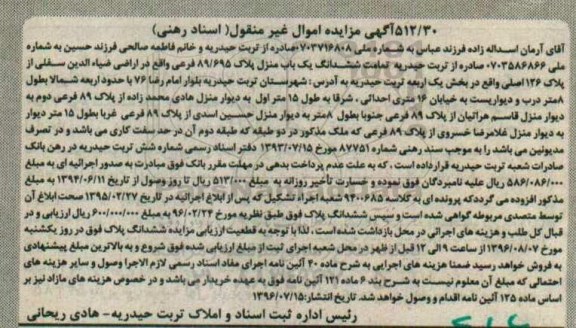 ۵۱۲/۳۰آگهی مزایده اموال غیر منقول( اسناد رهنی)
آقای آرمان اسداله زاده فرزند عباس به شماره ملی ۰۷۰۳۷۱۶۸۰۸صادره از تربت حیدریه و خانم فاطمه صالحی فرزند حسین به شماره
ملی ۰۷۰۳۵۸۶۸۶۶ صادره از تربت حیدریه تمامت ششدانگ یک باب منزل پلاک ۸۹/۶۹۵ فرعی واقع در اراضی ضیاء الدین سفلی از
پلاک ۱۲۶اصلی واقع در بخش یک اربعه تربت حیدریه به آدرس : شهرستان تربت حیدریه بلوار امام رضا ۷۶ با حدود اربعه شمالا بطول
۸متر درب و دیواریست به خیابان ۱۶ متری احداثی . شرقا به طول ۱۵ متر اول به دیوار منزل هادی محمد زاده از پلاک ۸۹ فرعی دوم به
دیوار منزل قاسم هراتیان از پلاک ۸۹ فرعی جنوبا بطول ۸متر به دیوار منزل حسین اسدی از پلاک ۸۹ فرعی غربا بطول ۱۵ متر دیوار
به دیوار منزل غلامرضا خسروی از پلاک ۸۹ فرعی که ملک مذکور در دو طبقه که طبقه دوم آن در حد سفت کاری می باشد و در تصرف
مدیونین می باشد را به موجب سند رهنی شماره ۸۷۷۵۱ مورخ ۱۳۹۳/۰۷/۱۵ دفتر اسناد رسمی شماره شش تربت حیدریه در رهن بانک
صادرات شعبه تربت حیدریه قرارداده است ، که به علت عدم پرداخت بدهی در مهلت مقرر بانک فوق مبادرت به صدور اجرائیه ای به مبلغ
۵۸۶/۰۸۶/۰۰۰ ریال علیه نامبردگان فوق نموده و خسارت تأخیر روزانه به مبلغ ۵۱۳/۰۰۰ ریال تا روز وصول از تاریخ ۱۳۹۴/۰۶/۱۱ به مبلغ
مذکور افزوده می گردد که پرونده ای به کلاسه ۹۴۰۰۶۸۵ شعبه اجراء تشکیل که پس از ابلاغ اجرائیه در تاریخ ۱۳۹۵/۰۲/۲۷ صحت ابلاغ آن
توسط متصدی مربوطه گواهی شده است و سپس ششدانگ پلاک فوق طبق نظریه مورخ ۹۶/۰۲/۲۴ به مبلغ ۶۰۰/۰۰۰/۰۰۰ ریال ارزیابی و در
قبال کل طلب و هزینه های اجرائی در محل بازداشت شده است . لذا با توجه به قطعیت ارزیابی مزایده ششدانگ پلاک فوق در روز یکشنبه
مورخ ۱۳۹۶/۰۸/۰۷ از ساعت ۹ الی ۱۲ قبل از ظهر در محل شعبه اجرای ثبت از مبلغ ارزیابی شده فوق شروع و به بالاترین مبلغ پیشنهادی
به فروش خواهد رسید ضمنا هزینه های اجرایی به شرح ماده ۴۰ آئین نامه اجرای مفاد اسناد رسمی لازم الاجرا وصول و سایر هزینه های
احتمالی که مبلغ آن معلوم نیست به شرح بند ۶ ماده ۱۲۱ آئین نامه فوق به عهده خریدار می باشد و در خصوص هزینه های مازاد نیز بر
اساس ماده ۱۲۵ آئین نامه اقدام و وصول خواهد شد. تاریخ انتشار:۱۳۹۶/۰۷/۱۵
رئیس اداره ثبت اسناد و املاک تربت حیدریه- هادی ریحانی